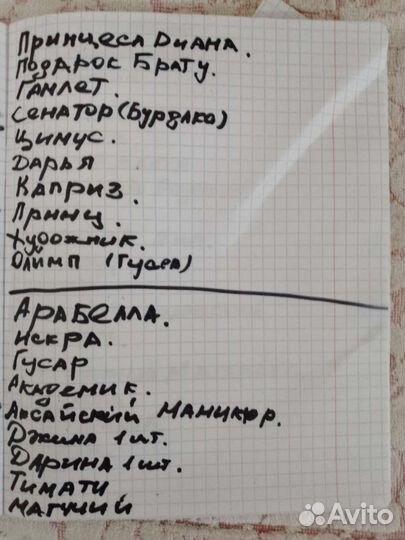 Принцеса Диана.
Подарок Брату.
Гамлет.
Сенатор (Бурдака)
Цимус.
Дарья
Каприз.
Принц.
Художник.
Олимп (Гусев)
Арабелла.
Искра.
Гусар
Академик.
Аксайский Маникюр.
Джина 1 шт.
Дарина 1 шт.
Тимати
Магучий
Avito